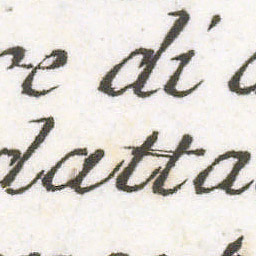 re di
datta